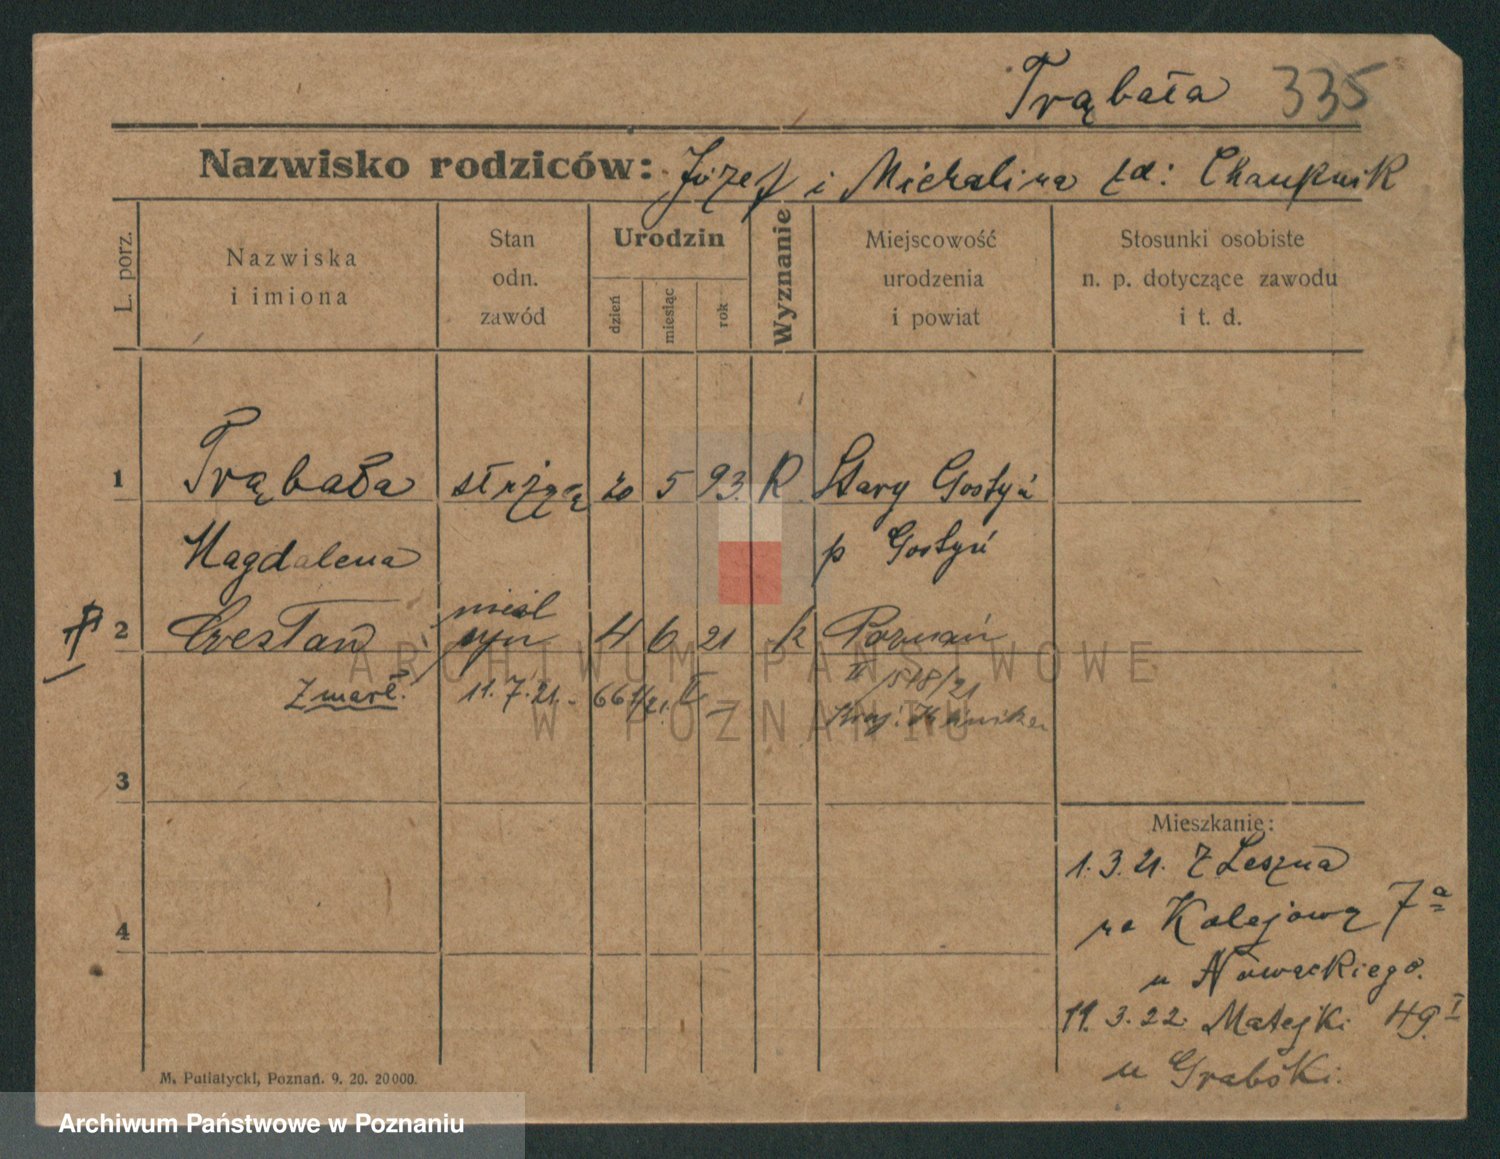 Trąbała 335
Nazwisko rodziców: Józef i Michalina zd: Chaupnik
L. porz.
Nazwiska
i imiona
Stan
odn.
zawód
Urodzin
dzień
miesiąc
rok
Wyznanie
Miejscowość
urodzenia
i powiat
Stosunki osobiste
n. p. dotyczące zawodu
i t. d.
1 Trąbała służąca 20 5 93. R Stary Gostyń
Magdalena p Gostyń
2 Czesław nieśl syn 4 6 21 k Poznań
zmarł. 11.7.21. II 1518/21
3
4
Mieszkanie:
1.3.21. z Leszna
na Kolejową 7a
u Nowackiego.
11.3.22. Matejki 49 I
u Grabski.
M. Putiatycki, Poznań. 9. 20. 20000.
ARCHIWUM PAŃSTWOWE
W POZNANIU
Archiwum Państwowe w Poznaniu